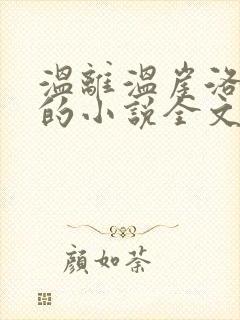 温離温崖洛
的小說全文
顏如荼